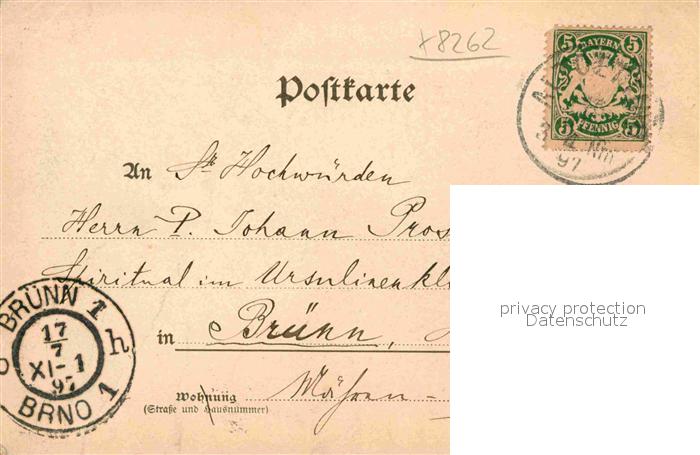 x8262
5 BAYERN 5
5 PFENNIG 5
Postkarte
97
An Sr Hochwürden
Herrn P. Johann
Spiritual im
in Brünn,
Mähren
Wohnung
(Straße und Hausnummer)
BRÜNN 1
17
7
XI-1
97
h
BRNO 1
privacy protection
Datenschutz